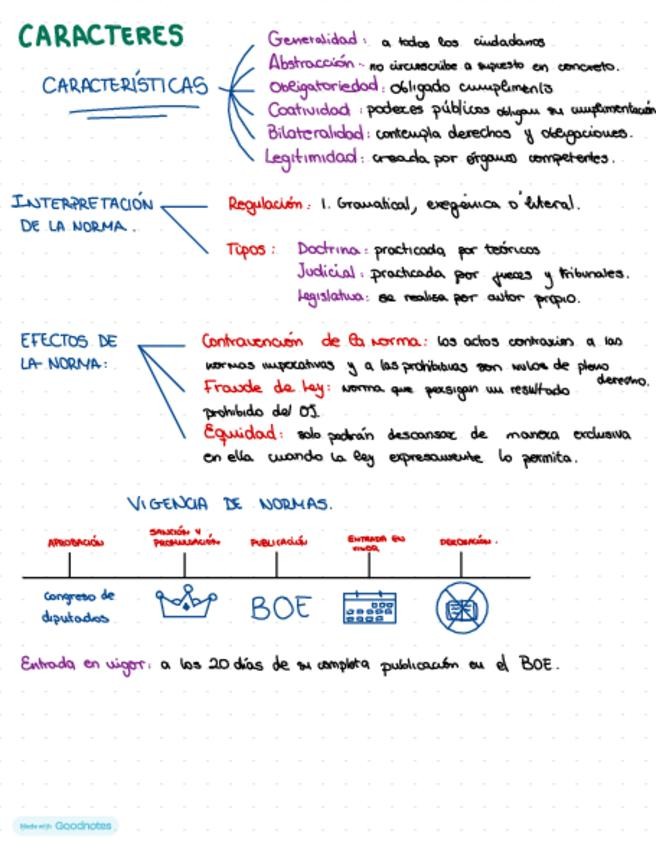 CARACTERES
CARACTERÍSTICAS
Generalidad: a todos los ciudadanos
Abstracción - no circunscribe a supuesto en concreto.
Obligatoriedad: obligado cumplimento
Coatividad: poderes públicos obligan su cumplimentación
Bilateralidad: contempla derechos y obligaciones.
Legitimidad: creada por órganos competentes.
INTERPRETACIÓN
DE LA NORMA.
Regulación: 1. Gramatical, exegénica o literal.
Tipos: Doctrina: practicada por teóricos
Judicial: practicada por jueces y tribunales.
Legislativa: se realiza por autor propio.
EFECTOS DE
LA NORMA:
Contravención de la norma: los actos contrarios a las
normas imperativas y a las prohibitivas son nulos de pleno
derecho.
Fraude de ley: norma que persigan un resultado
prohibido del OJ.
Equidad: solo podrán descansar de manera exclusiva
en ella cuando la ley expresamente lo permita.
VIGENCIA DE NORMAS.
APROBACIÓN
SANCIÓN Y
PROMULGACIÓN
PUBLICACIÓN
ENTRADA EN
VIGOR
DEROGACIÓN.
congreso de
diputados
BOE
Entrada en vigor: a los 20 días de su completa publicación en el BOE.
Made with Goodnotes